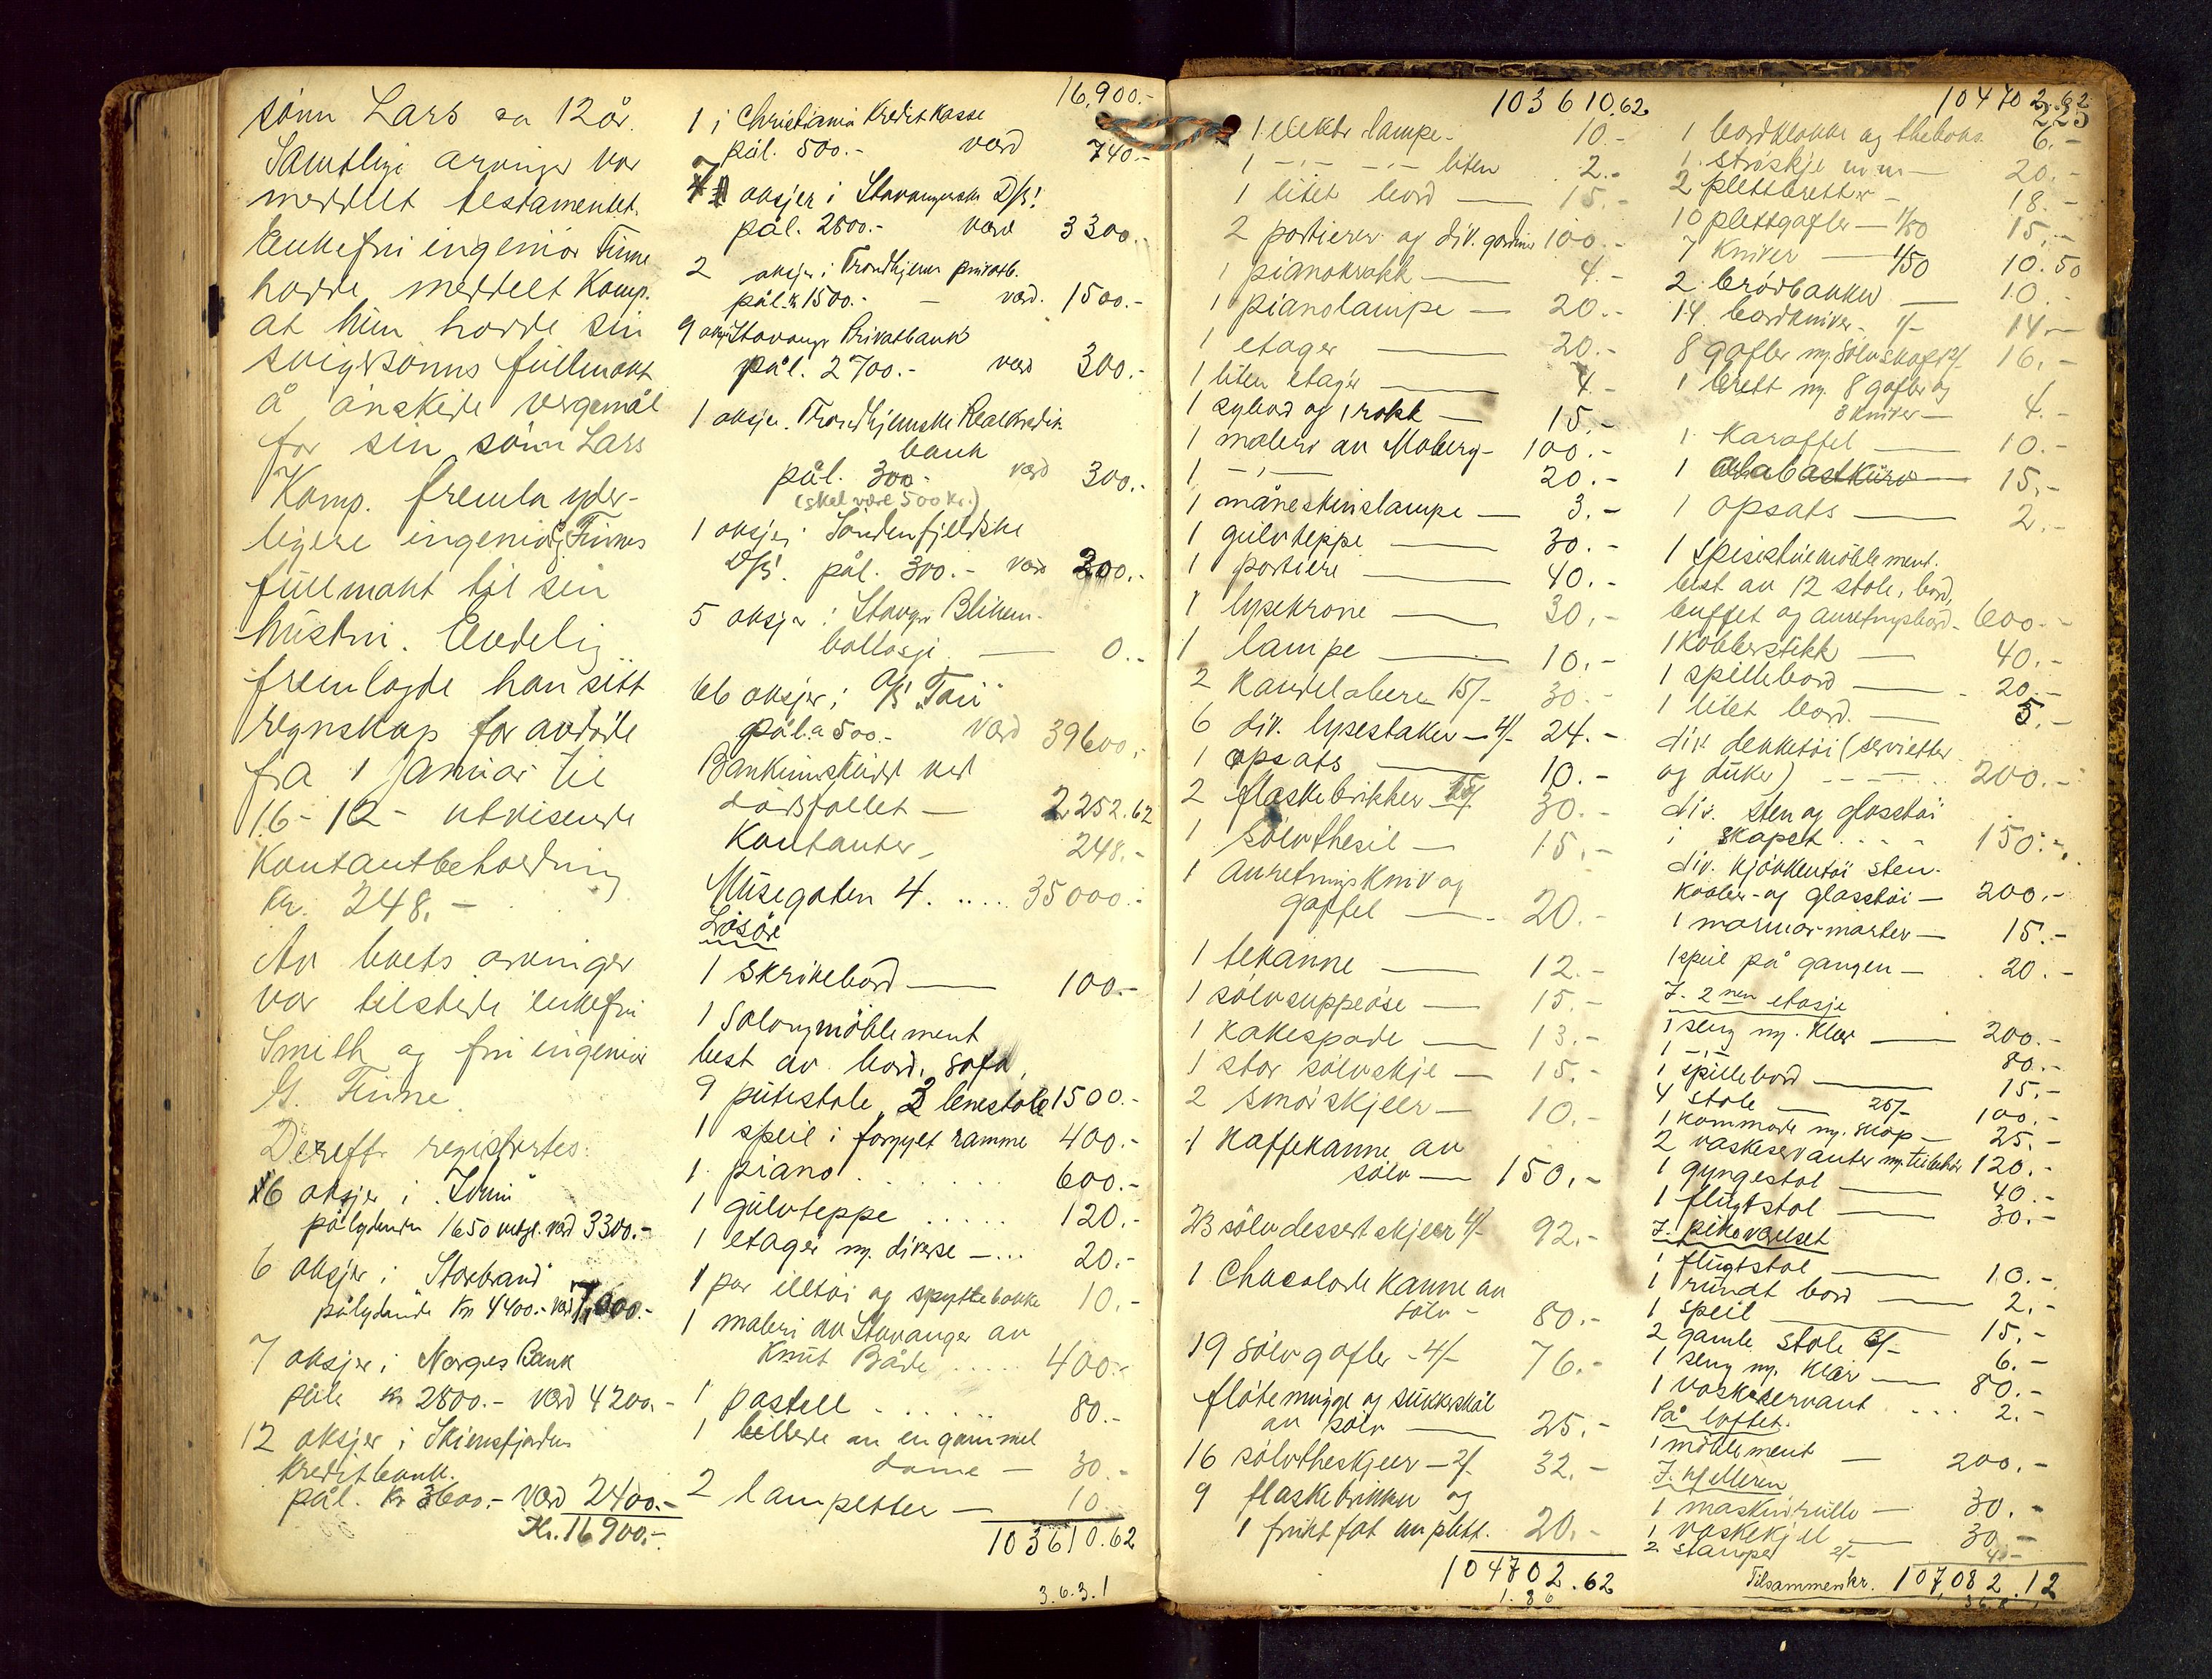 sönn Lars ca 12 år.
Samtlige arvinger var
meddelt testamentet.
Enkefru ingeniör Finne
hadde meddelt Komp.
at hun hadde sin
svigersönns fullmakt
å önskede vergemål
for sin sönn Lars
Komp. fremla yder-
ligere ingeniör Finnes
fullmakt til sin
hustru. Endelig
fremlagde han sitt
regnskap for avdöde
fra 1 januar til
16-12- utvisende
Kontantbeholdning
kr. 248.-
Av boets arvinger
var tilstede enkefru
Smith og fru ingeniör
G. Finne.
Dereftr registrertes:
16 aksjer i "Idun"
pålydende 1650 verd 3300.-
6 aksjer i Storebrand
pålydende Kr 4400.- verd 7,000.-
7 aksjer i Norges Bank
påle kr 2800.- verd 4200.-
12 aksjer i Skiensfjordens
Kreditbank.
pål. kr 3600.- verd 2400.-
Kr. 16900.-
16,900.-
1 i Christiania Kreditkasse
pål. 500.- verd 740.-
7 aksjer i Stavangerske D/S!
pål. 2800.- verd 3300.-
2 aksjer i Trondhjems privatb.
pål. kr 1500.- - verd. 1500.-
9 aksj Stavanger Privatbank
pål. 2700.- verd 300.-
1 aksje. Trondhjemske Realkredit
bank
pål. 300.- verd 300.-
(skal være 500 Kr.)
1 aksje i Söndenfjeldske
D/S!. pål. 300.- verd 200.-
5 aksjer i Stavgr Blikem-
ballasje — 0.-
66 aksjer i A/S "Tau"
pål. a 500.- verd 39600.-
Bankinnskudd ved
dödsfallet — 2252.62
Kontanter - 248.-
Musegaten 4. ..... 35000.-
Lösöre
1 skrivebord — 100.-
1 Salongmöblement
best av bord, sofa,
9 putestole, 2 lenestole 1500.-
1 speil i forgylt ramme 400.-
1 piano . . . . . 600.-
1 gulvteppe ..... 120.-
1 etagér m. diverse —... 20.-
1 par illtöi og spyttebakke 10.-
1 maleri av Stavanger av
Knut Både ..... 400.-
1 pastell . . . . . 80.-
1 billede av en gammel
dame — 30.-
2 lampetter — 10.
103610.62
3.6.3.1
103610.62
1 elektr lampe - 10.-
1 -"- -"- liten 2.-
1 litet bord — 15.-
2 portierer og div. gardiner 100.-
1 pianokrakk — 4.-
1 pianolampe — 20.-
1 etager — 20.-
1 liten etagér — 4.-
1 sybord og 1 rokk — 15.-
1 maleri av Moberg - 100.-
1 -"- 20.-
1 måneskinslampe — 3.-
1 gulvteppe — 30.-
1 portiere — 40.-
1 lysekrone — 30.-
1 lampe — 10.-
2 Kandelabere 15/- 30.-
6 div. lysestaker — 4/- 24.-
1 opsats — 10.-
2 flaskebrikker 15/- 30.-
1 sölvthesil — 15.-
1 anretningskniv og
gaffel — 20.-
1 tekanne — 12.-
1 sölvsuppeöse — 15.-
1 kakespade — 13.-
1 stor sölvskje — 15.-
2 smörskjeer — 10.-
1 Kaffekanne av
sölv — 150.-
23 sölvdessertskjeer 4/- 92.-
1 Chocolade Kanne av
sölv - 80.-
19 sölvgafler - 4/- 76.-
flötemugge og sukkerskål
av sölv — 25.-
16 sölvtheskjeer — 2/- 32.-
9 flaskebrikker og
1 fruktfat av plett. 20.-
104702.62
1. 8 6
104702.62
225
1 bordklokke og theboks 6.-
1 ströskje m m — 20.-
2 plettbretter - 18.-
10 plettgafler — 1/50 15.-
7 Kniver — 1/50 10.50
2 brödbakker — 10.-
14 bordkniver - 1/- 14.-
8 gafler m. sölvskaft 2/- 16.-
1 brett m. 8 gafler og
3 kniver — 4.-
1 Karaffel — 10.-
1 alabastkurv — 15.-
1 opsats — 2.-
1 spisestuemöblement.
best av 12 stole, bord,
buffet og anretningsbord - 600.-
1 Kobberstikk — 40.-
1 spillebord — 20.-
1 litet bord. — 5.-
div. dekketöi (servietter
og duker) - - - - 200.-
div. sten og glasstöi
i skapet . . . . 150.-
div. kjökkentöi sten-
kobber- og glasstöi — 200.-
1 marmormorter — 15.-
1 speil på gangen — 20.-
I. 2nen etasje
1 seng m. klær — 200.-
1 -"- 80.-
1 spillebord — 15.-
4 stole — 25/- 100.-
1 kommode m. skap — 25.-
2 vaskeservanter m. tilbehör 120.-
1 gyngestol — 40.-
1 flugtstol — 30.-
I. pikeværelset
1 flugtstol — 10.-
1 rundt bord — 2.-
1 speil — 15.-
2 gamle stole 3/- 6.-
1 seng m. klær — 80.-
1 vaskeservant ... 2.-
På loftet.
1 möblement — 200.-
I. kjelleren
1 maskinrulle — 30.-
1 vaskekjel — 30.-
2 stamper 2/- 4.-
Tilsammen kr. 107,082.12